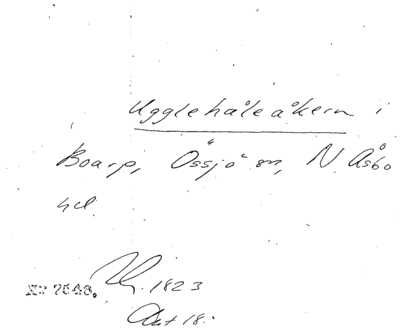 Ugglehåleåkern i
Boarp, Össjö sn, N. Åsbo
hd.
1823
Akt 18.